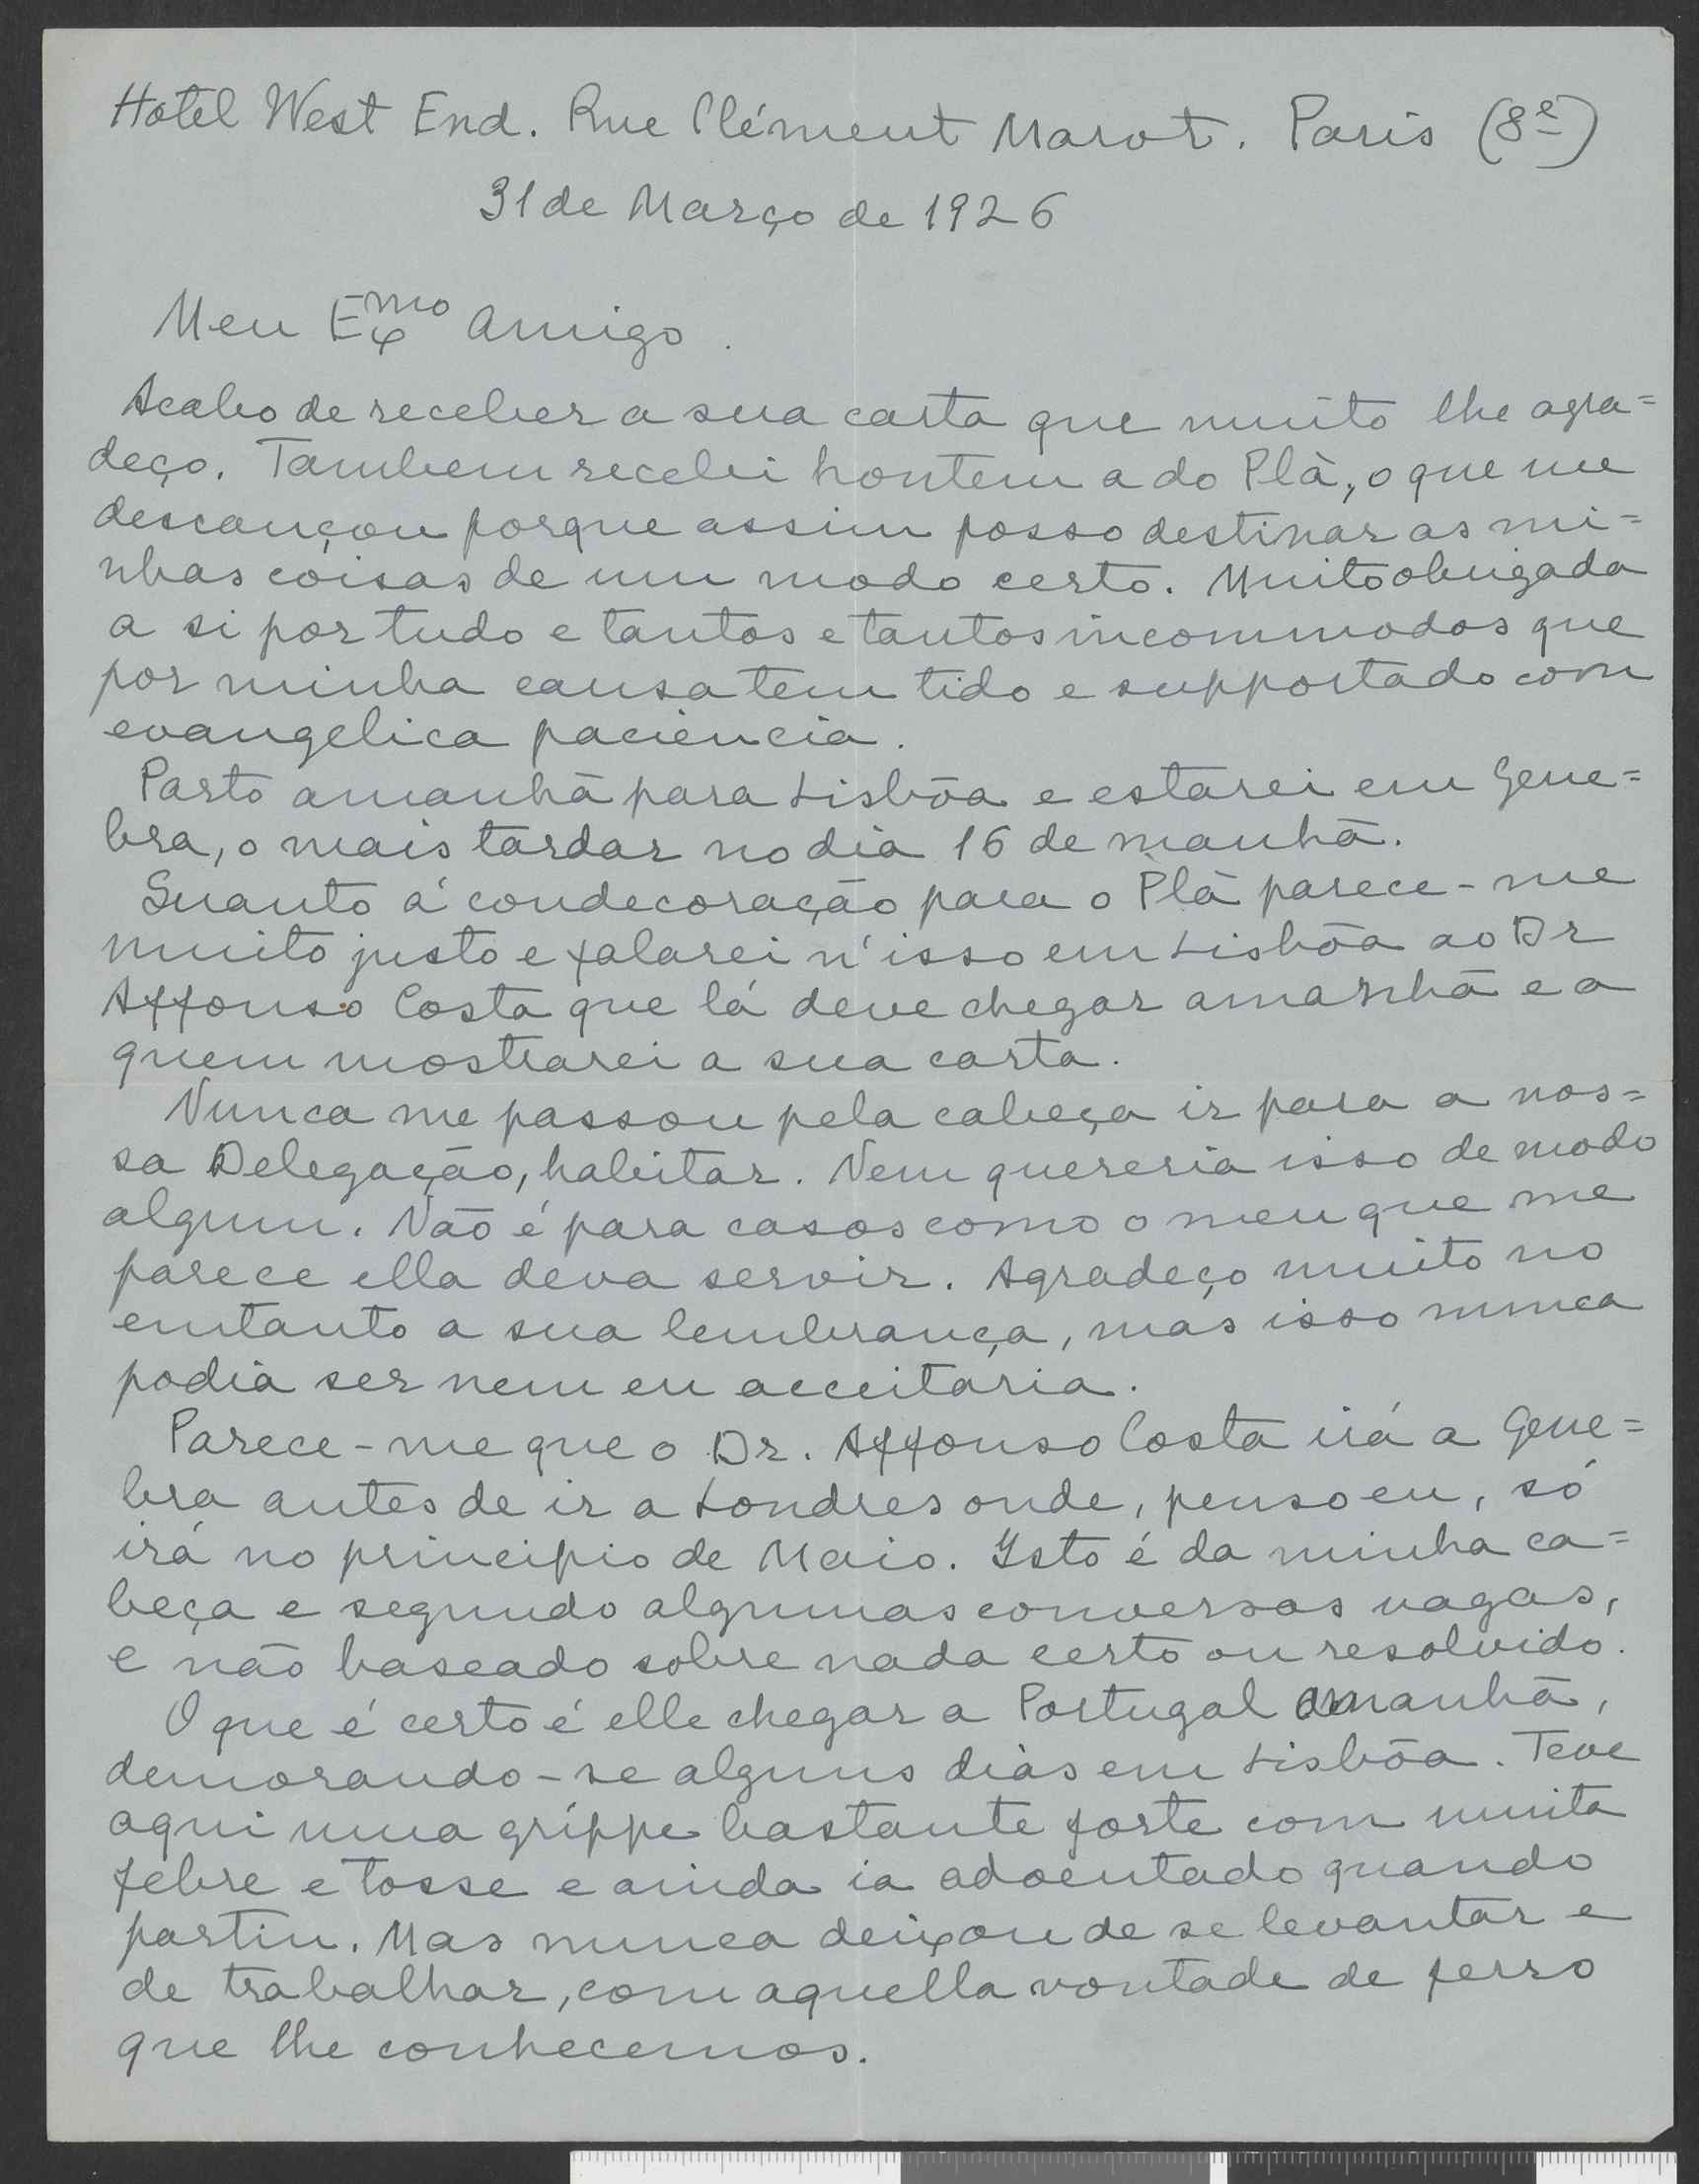 Hotel West End. Rue Clément Marot. Paris (8e)
31 de Março de 1926
Meu Exmo Amigo.
Acabo de receber a sua carta que muito lhe agra=
deço. Tambem recebi hontem a do Plà, o que me
descançou porque assim posso destinar as mi=
nhas coisas de um modo certo. Muito obrigada
a si por tudo e tantos e tantos incommodos que
por minha causa tem tido e supportado com
evangelica paciencia.
Parto amanhã para Lisbôa e estarei em Gene=
bra, o mais tardar no dia 16 de manhã.
Quanto á condecoração para o Plà parece-me
muito justo e falarei n'isso em Lisbôa ao Dr
Affonso Costa que lá deve chegar amanhã e a
quem mostrarei a sua carta.
Nunca me passou pela cabeça ir para a nos=
sa Delegação, habitar. Nem quereria isso de modo
algum. Não é para casos como o meu que me
parece ella deva servir. Agradeço muito no
emtanto a sua lembrança, mas isso nunca
podia ser nem eu acceitaria.
Parece-me que o Dr. Affonso Costa irá a Gene=
bra antes de ir a Londres onde, penso eu, só
irá no principio de Maio. Isto é da minha ca=
beça e segundo algumas conversas vagas,
e não baseado sobre nada certo ou resolvido.
O que é certo é elle chegar a Portugal amanhã,
demorando-se alguns dias em Lisbôa. Teve
aqui uma grippe bastante forte com muita
febre e tosse e ainda ia adoentado quando
partiu. Mas nunca deixou de se levantar e
de trabalhar, com aquella vontade de ferro
que lhe conhecemos.